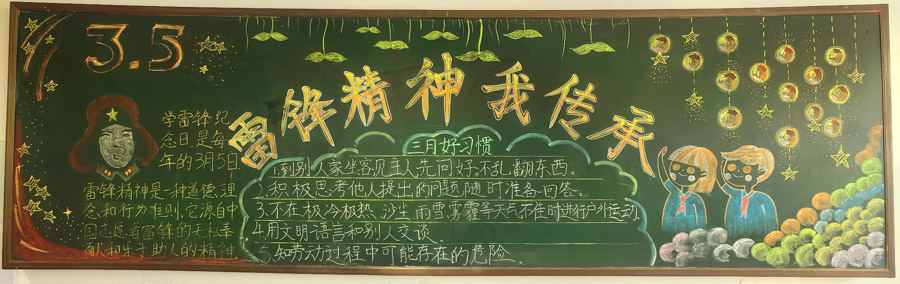 3.5
雷锋精神我传承
学雷锋纪
念日是每
年的3月5日
雷锋精神是一种道德理
念和行为准则,它源自中
国志愿者雷锋的无私奉
献和乐于助人的精神
三月好习惯
1.到别人家坐客见主人先问好,不乱翻东西。
2.积极思考他人提出的问题,随时准备回答。
3.不在极冷极热、沙尘、雨雪、雾霾等天气不佳时进行户外运动
4.用文明语言和别人交谈
5.知劳动过程中可能存在的危险。